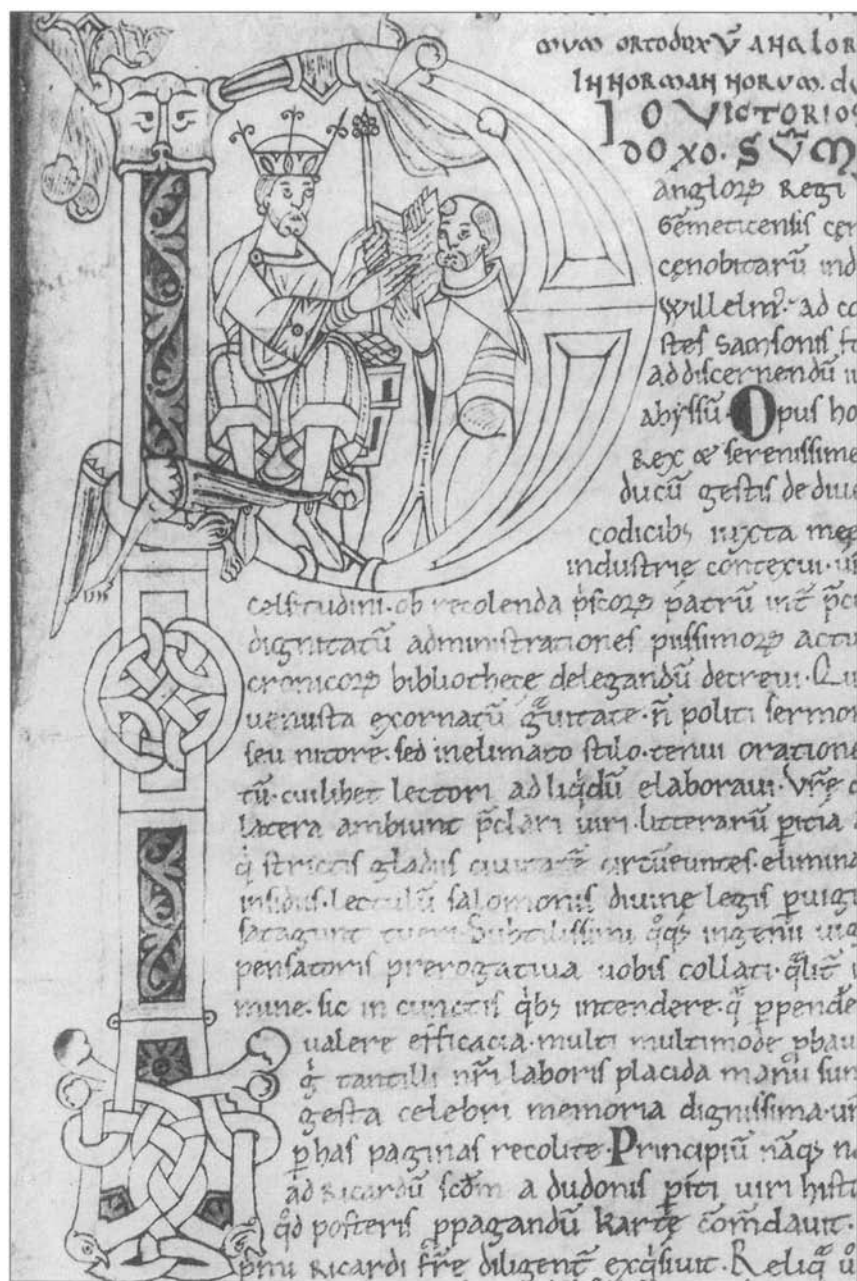 mum ORTODOXŪ ANGLOR
IN NORMANNORUM. du
IO VICTORIOS
DOXO. SŪM
angloꝝ Regi
Gemeticensis cen
cenobitarū ind
Willelm᷒. ad co
stes Samsonis fo
ad discernendū
abyssū. Opus ho
Rex & serenissime
ducū gestis de dive
codicibꝫ iuxta me
industrie contexui. u
celsitudini. ob recolenda p̄scoꝝ patrū int̄ p̄c
dignitatū administrationes piissimoꝝ actu
cronicoꝝ bibliothece delegandū decrevi. Qu
venusta exornatū gͣuitate. n̄ politi sermon
seu nitorē. sed inelimato stilo. tenui oratione
tū. cuilibet lectori ad liqͥdū elaboravi. Vr̄e
latera ambiunt p̄clari viri. litterarū pitia
qͥ strictis gladiis civitatē circūeuntes. elimina
insidiis. lectulū salomonis divine legis puigi
satagunt tueri. Subtilissimi qͦqꝫ ingenii vig
pensatoris prerogativa vobis collati. qͣlit̄
mine. sic in cunctis qͥbꝫ intendere. ppende
valere efficacia. multi multimode phau
tantilli nr̄i laboris placida manu sum
gesta celebri memoria dignissima.
p has paginas recolite. Principiū nāqꝫ na
ad Ricardū scd̄m a dudonis piti viri hist
qͦd posteris ppagandū karte com̄davit.
pmi Ricardi fr̄e diligent̄ exqͥsivit. Reliqͣ